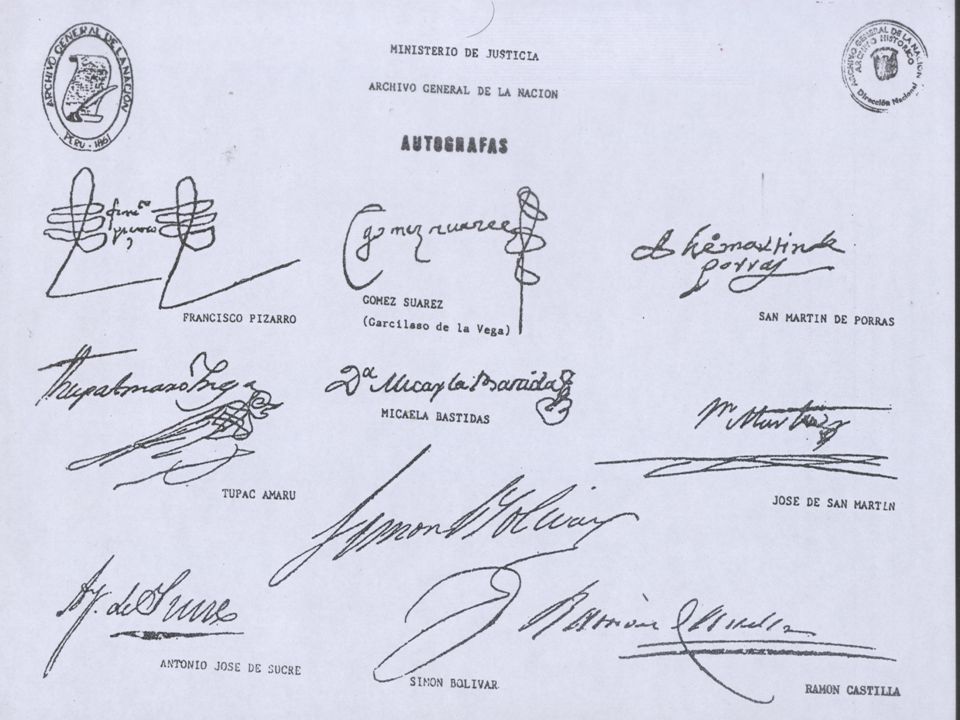 ARCHIVO GENERAL DE LA NACIÓN
PERU - 1861
MINISTERIO DE JUSTICIA
ARCHIVO GENERAL DE LA NACION
ARCHIVO GENERAL DE LA NACION
ARCHIVO HISTORICO
Dirección Nacional
AUTOGRAFAS
franco
FRANCISCO PIZARRO
gomez suarez
GOMEZ SUAREZ
(Garcilaso de la Vega)
martin de
porras
SAN MARTIN DE PORRAS
Thupa Amaro Inga
TUPAC AMARU
Da Micayla Bastidas
MICAELA BASTIDAS
Martin
JOSE DE SAN MARTIN
Simon Bolivar
SIMON BOLIVAR
A. J. de Sucre
ANTONIO JOSE DE SUCRE
Ramón Castilla
RAMON CASTILLA